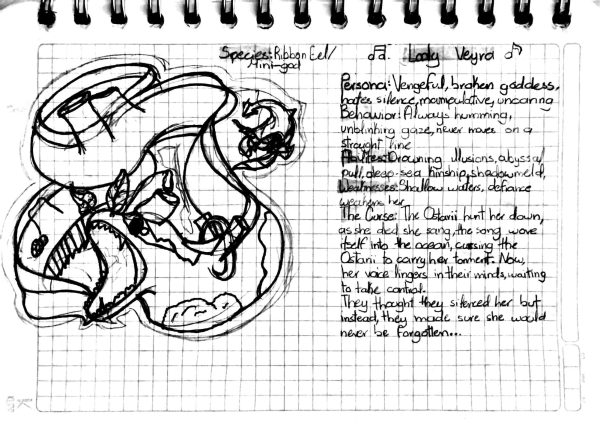 Species: Ribbon Eel/
Mini-god
♫. Lady Veyra ♫
Persona: Vengeful, broken goddess,
hates silence, manipulative, uncaring
Behavior: Always humming,
unblinking gaze, never moves on a
straight line
Abilities: Drowning illusions, abyssal
pull, deep-sea kinship, shadowmeld,
Weaknesses: Shallow waters, defiance
weakens her
The Curse: The Ostarii hunt her down,
as she died she sang, the song wove
itself into the ocean, cursing the
Ostarii to carry her torment. Now,
her voice lingers in their minds, waiting
to take control.
They thought they silenced her but
instead, they made sure she would
never be forgotten...